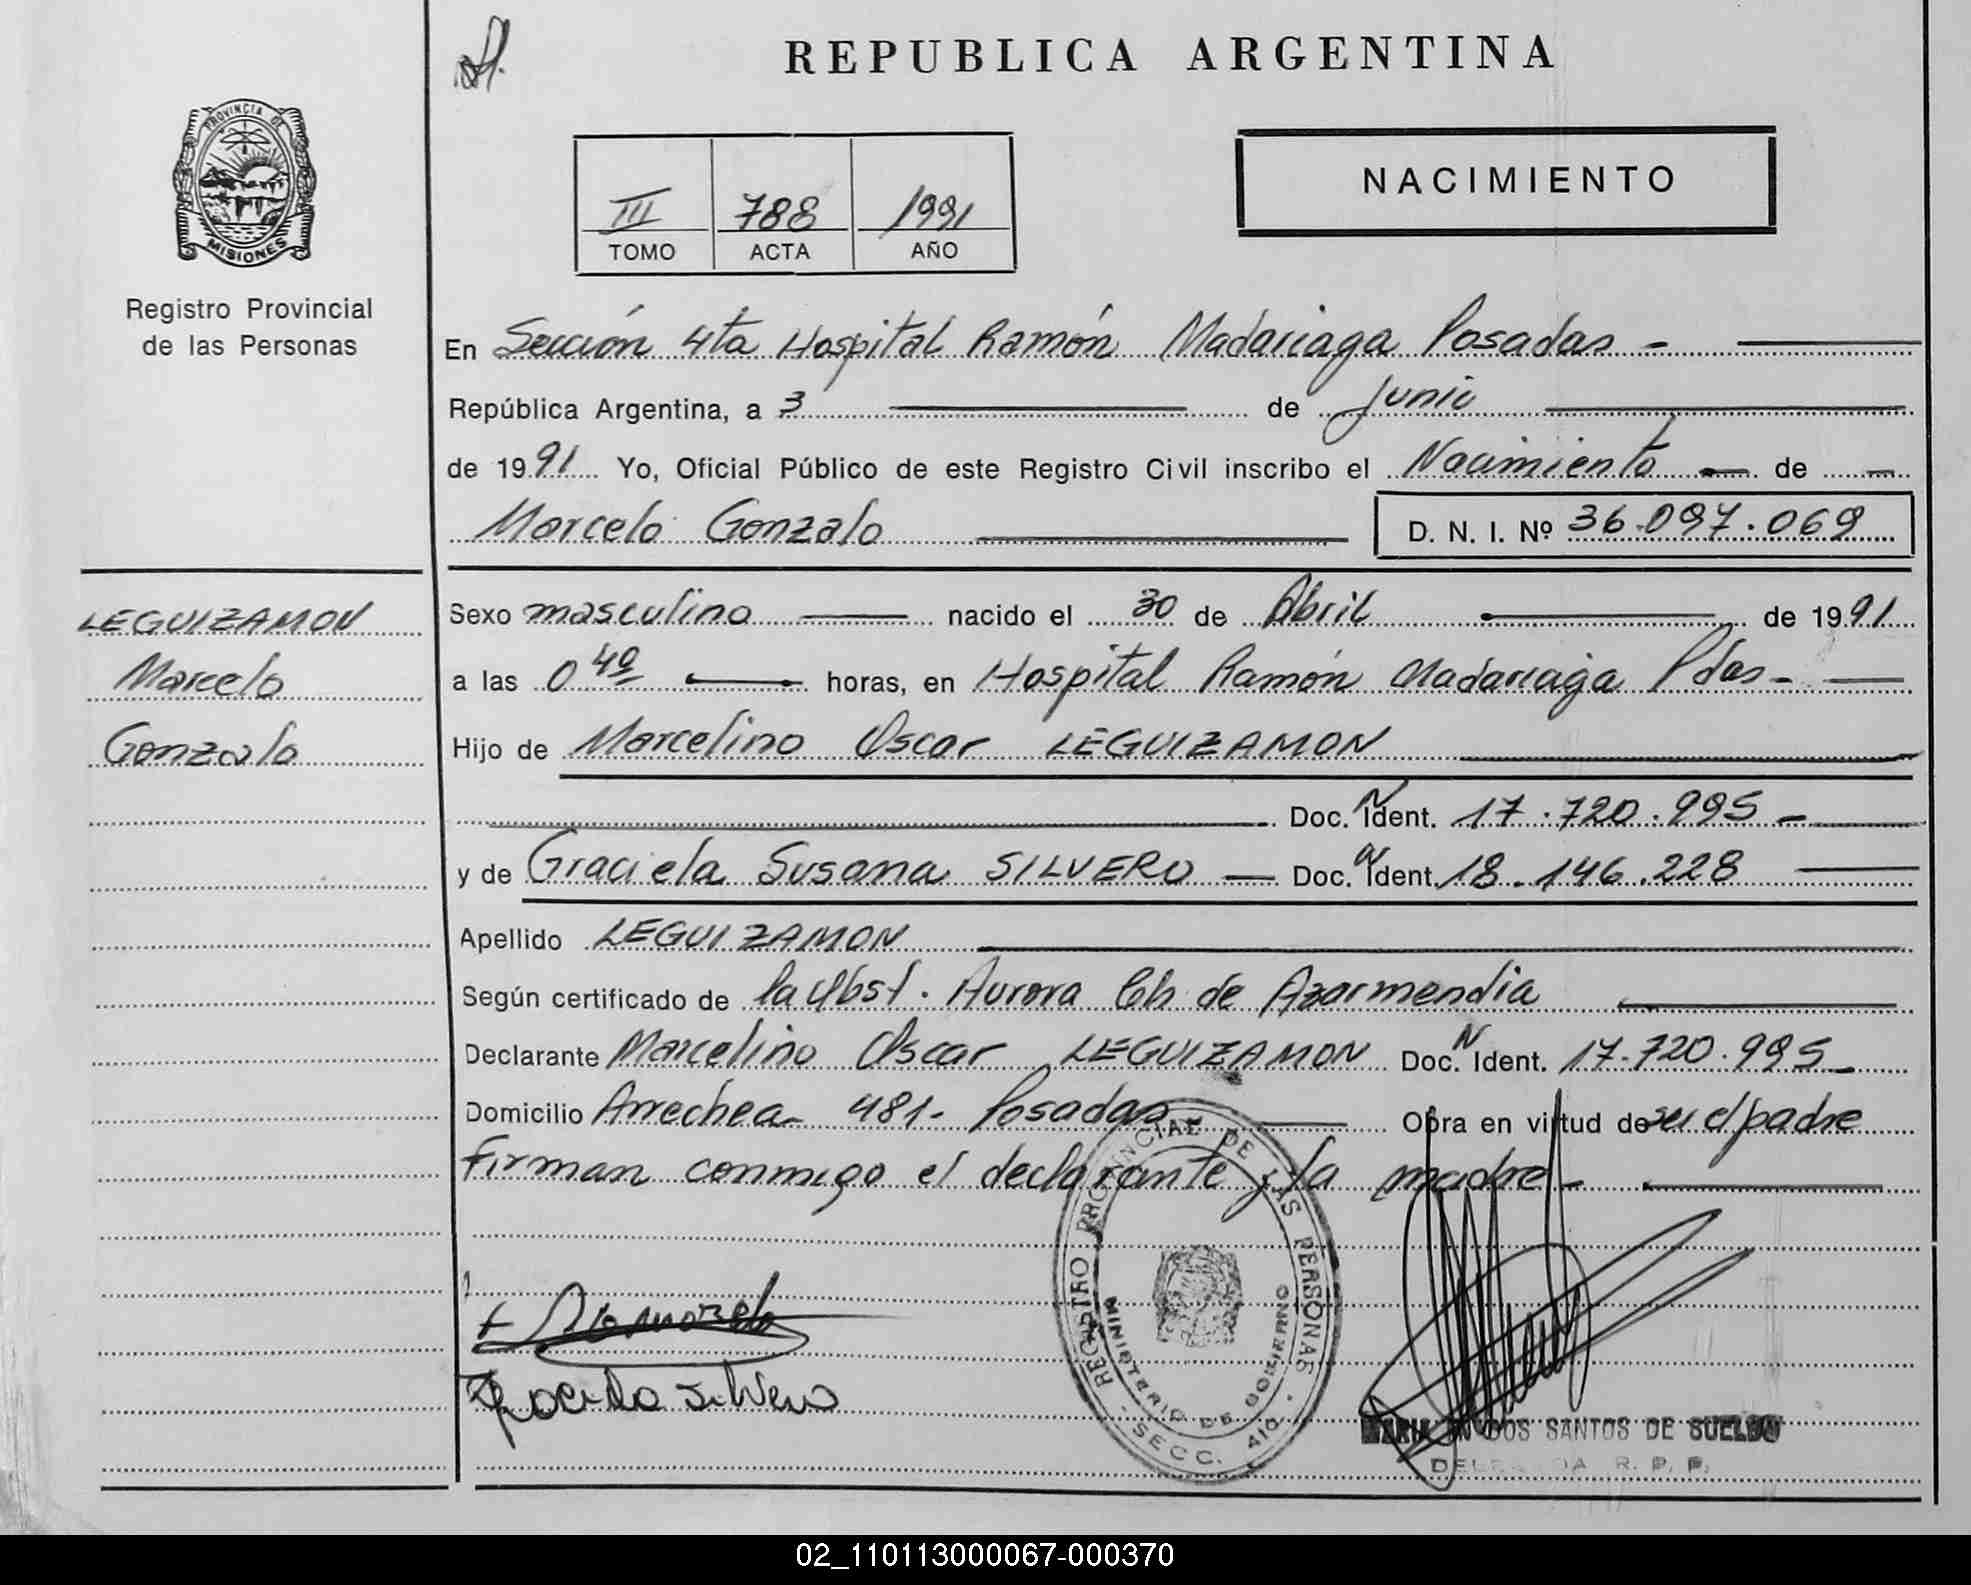 REPUBLICA ARGENTINA
PROVINCIA DE
MISIONES
Registro Provincial
de las Personas
III 788 1991
TOMO ACTA AÑO
NACIMIENTO
En Sección 4ta Hospital Ramón Madariaga Posadas -
República Argentina, a 3 de junio
de 1991 Yo, Oficial Público de este Registro Civil inscribo el Nacimiento de
Marcelo Gonzalo D. N. I. Nº 36.097.069
LEGUIZAMON
Marcelo
Gonzalo
Sexo masculino nacido el 30 de Abril de 1991
a las 0 40 horas, en Hospital Ramón Madariaga Pdas-
Hijo de Marcelino Oscar LEGUIZAMON
Doc. N Ident. 17.720.995 -
y de Graciela Susana SILVERO - Doc. Ident. 18.146.228
Apellido LEGUIZAMON
Según certificado de la Obst. Aurora Ch de Azarmendia
Declarante Marcelino Oscar LEGUIZAMON Doc. N Ident. 17.720.995
Domicilio Arrechea 481- Posadas Obra en virtud de ser el padre
Firman conmigo el declarante y la madre -
REGISTRO PROVINCIAL DE LAS PERSONAS
MINISTERIO DE GOBIERNO
SECC. 4ta
Silvero
DOS SANTOS DE SUELDO
R. P. P.
02_110113000067-000370